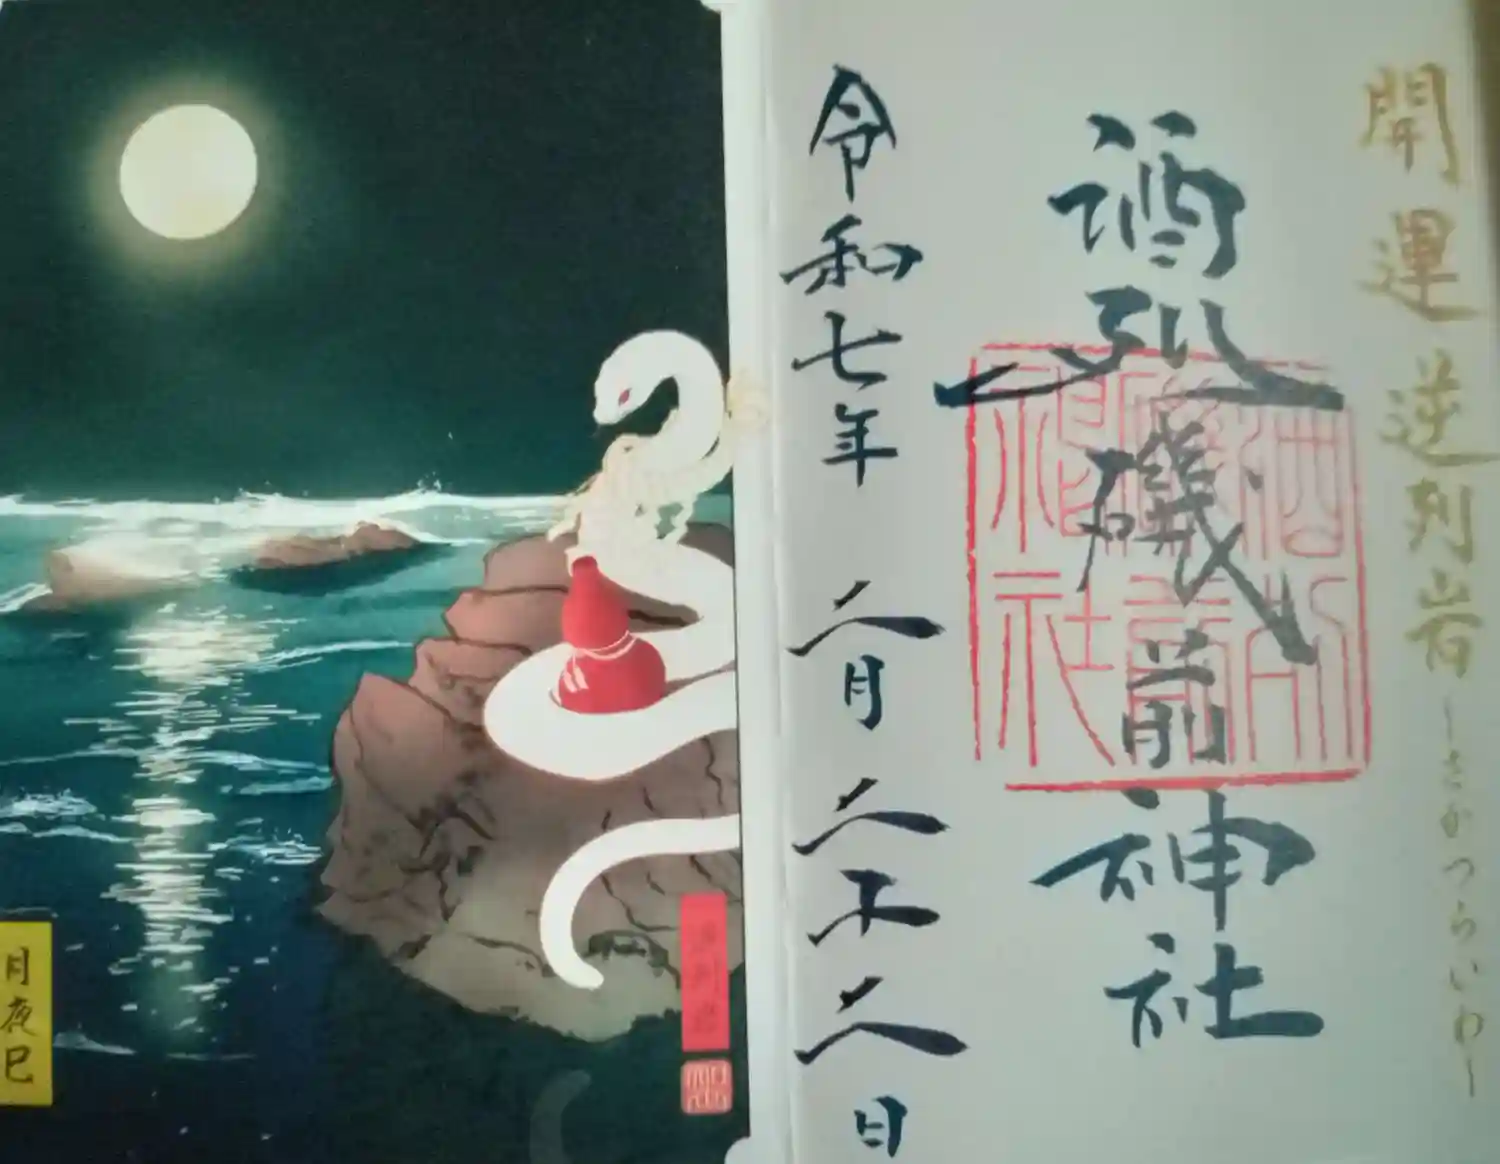 開運 逆列岩 ~さかつらいわ~
酒列磯前神社
酒列
磯前
神社
令和七年 二月二十二日
逆列岩
月夜巳